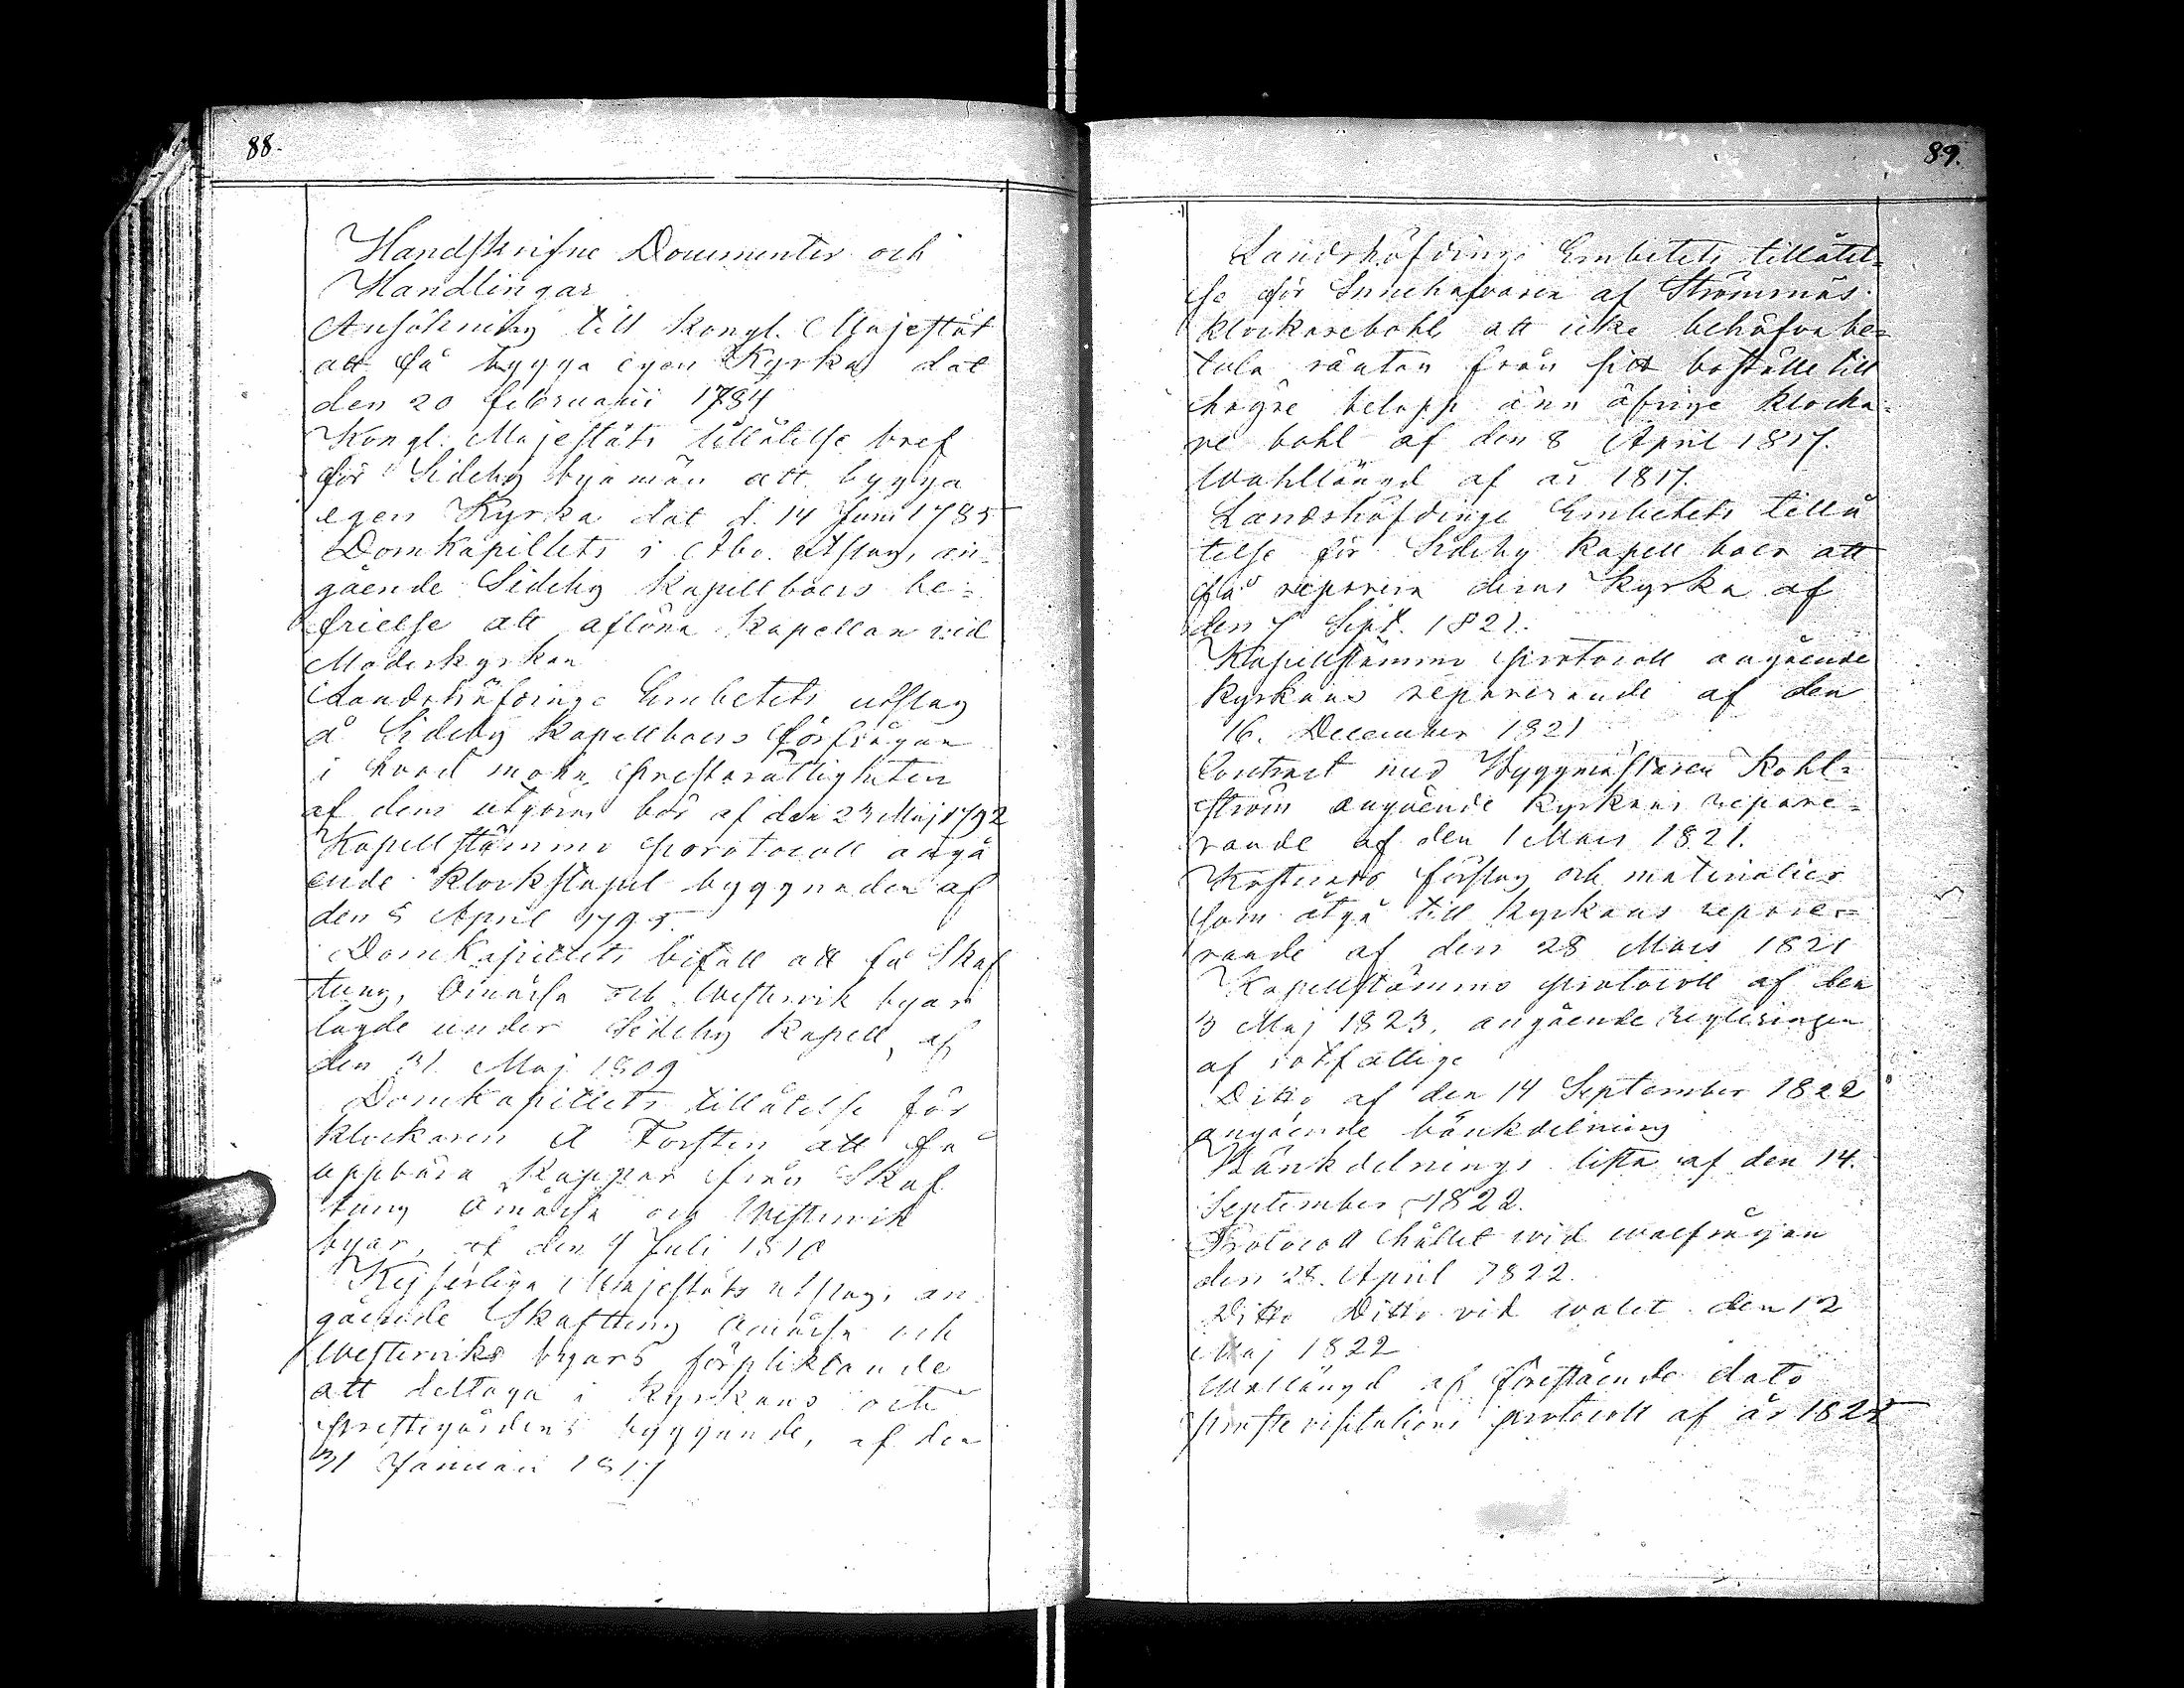 88.
Handskrifne Documenter och
Handlingar
Ansökning till Kongl. Majestät
att få bygga egen Kyrka dat
den 20 februarii 1784
Kongl. Majestäts tillåtelse bref
för Sideby byamän att bygga
egen Kyrka dat d. 14 Juni 1785
Domkapitlets i Åbo utslag, an-
gående Sideby Kapellboers be-
frielse att aflöna Kapellan vid
Moderkyrkan
Landshöfdinge Embetets utslag
å Sideby kapellboers förfrågan
i hvad mohn Prestarättigheten
af dem utgöras bör af den 23 Maj 1792
Kapellstämmo protocoll angå
ende klockstapel byggnaden af
den 8 April 1795.
Domkapitlets bifall att få Skaf
tung, Ömåsa och Westervik byar
lagde under Sideby Kapell, af
den 31. Maj 1809
Domkapitlets tillåtelse för
klockaren A Forsten att få
uppbära Kappar från Skaf
tung Ömåsa och Westervik
byar, af den 9 Juli 1810
Kejserliga Majestäts utslag, an
gående Skaftung Ömåsa och
Westerviks byars förpliktande
att deltaga i Kyrkans och
Prestegårdens byggande, af den
31 Januari 1817
89.
Landshöfdinge Embetets tillåtel=
se för Innehafvaren af Strömnäs
klockarebohl att icke behöfva be=
tala räntan från sitt boställe till
högre belopp änn öfrige klocka=
re bohl af den 8 April 1817.
Wahllängd af år 1817.
Landshöfdinge Embetets tillå
telse för Sideby Kapell boer att
få reparera deras Kyrka af
den 7 Sept. 1821.
Kapellstämmo protocoll angående
Kyrkans reparerande af den
16. December 1821
Contract med Byggmästaren Kohl=
ström angående Kyrkans repare=
rande af den 1 Mars 1821.
Kostnads förslag och materialier
som åtgå till Kyrkans repare=
rande af den 28 Mars 1821
Kapellstämmo protocoll af den
3 Maj 1823. angående regleringen
af rotfattige
Ditto af den 14 September 1822
angående bänkdelning
Bänkdelnings lista af den 14.
September 1822.
Protocoll hållet wid walfrågan
den 28. April 1822.
Ditto Ditto vid walet den 12
Maj 1822
Wallängd af förestående dato
Prostevisitations protocoll af år 1825